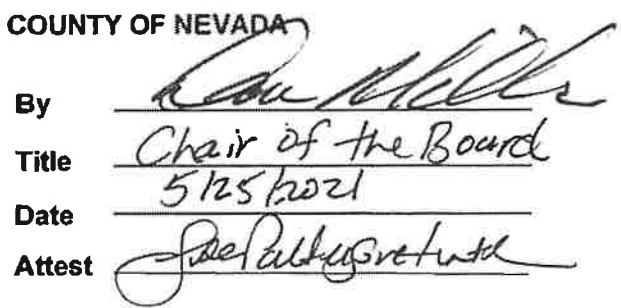 COUNTY OF NEVADA
By Dan Miller
Title Chair of the Board
Date 5/25/2021
Attest